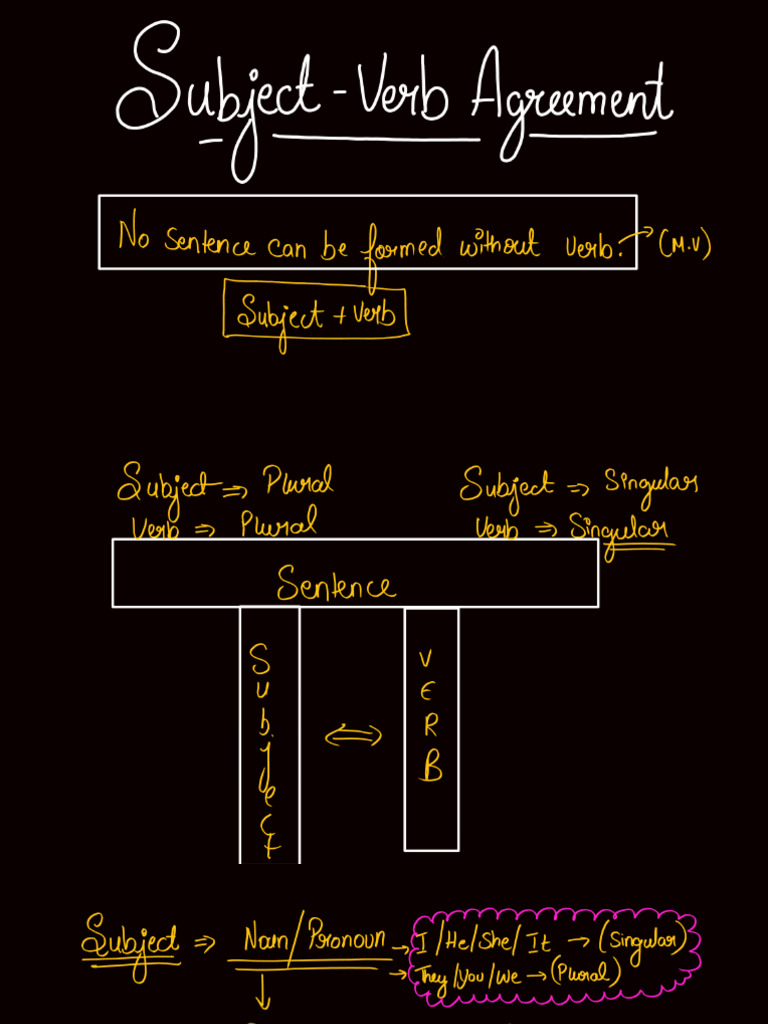 Subject - Verb Agreement
No Sentence can be formed without verb. → (M.V)
Subject + Verb
Subject ⇒ Plural
Verb ⇒ Plural
Subject ⇒ Singular
Verb ⇒ Singular
Sentence
Subject ⇔ VERB
Subject ⇒ Noun/Pronoun → I/He/She/It → (Singular)
→ They/You/We → (Plural)